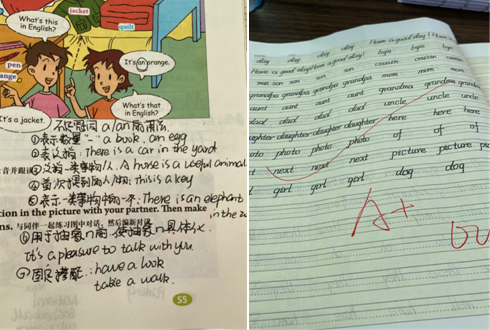 What's this
in English?
jacket
quilt
pen
It's an orange.
ange
What's that
in English?
It's a jacket.
不定冠词 a/an 的用法
①表示数量"一" a book, an egg
②表议指: There is a car in the yard
③议指一类事物/人 A horse is a useful animal
④首次提到的人/物: this is a key
⑤表示一类事物中的一个: There is an elephant
in the zo
tion in the picture with your partner. Then make
ns. 与同伴一起练习图中对话,然后编新对话
⑥用于抽象n前,使抽象n具体化
It's a pleasure to talk with you
⑦固定搭配: have a look
take a walk.
55
day day day day Have a good day! Have a
Have a good day! Have a good day! bye bye
son son son cousin cousin
grandpa grandpa grandpa mom mom mom
aunt aunt aunt grandma grandma grandma
dad dad dad uncle uncle
daughter daughter daughter here here here
photo photo photo of of of
next next next picture picture pic
girl girl girl dog dog
A+